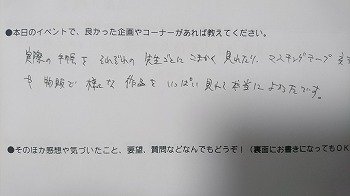 ●本日のイベントで、良かった企画やコーナーがあれば教えてください。
実際の手帳をそれぞれの先生ごとにこまかく見れたり、マスキングテープ
も物販で様々な作品をいっぱい見れて本当によかったです。
●そのほか感想や気づいたこと、要望、質問などなんでもどうぞ！（裏面にお書きになってもOK